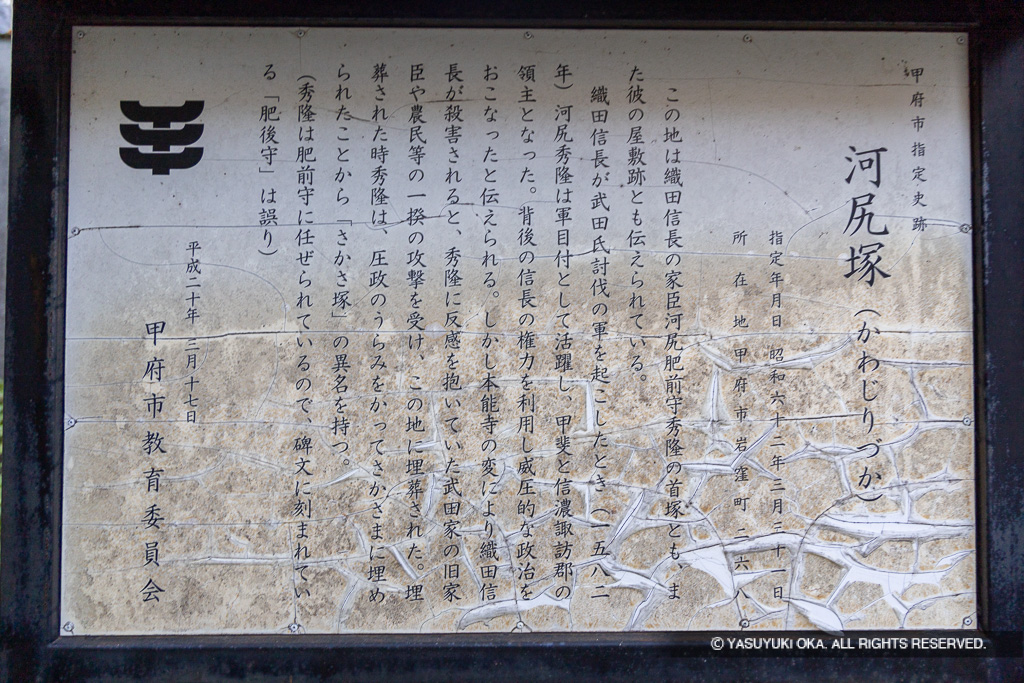 甲府市指定史跡
河尻塚（かわじりづか）
指定年月日 昭和六十二年三月三十一日
所在地 甲府市岩窪町二六八
この地は織田信長の家臣河尻肥前守秀隆の首塚とも、ま
た彼の屋敷跡とも伝えられている。
織田信長が武田氏討伐の軍を起こしたとき（一五八二
年）河尻秀隆は軍目付として活躍し、甲斐と信濃諏訪郡の
領主となった。背後の信長の権力を利用し威圧的な政治を
おこなったと伝えられる。しかし本能寺の変により織田信
長が殺害されると、秀隆に反感を抱いていた武田家の旧家
臣や農民等の一揆の攻撃を受け、この地に埋葬された。埋
葬された時秀隆は、圧政のうらみをかってさかさまに埋め
られたことから「さかさ塚」の異名を持つ。
（秀隆は肥前守に任ぜられているので、碑文に刻まれてい
る「肥後守」は誤り）
平成二十年 三月十七日
甲府市教育委員会
© YASUYUKI OKA. ALL RIGHTS RESERVED.